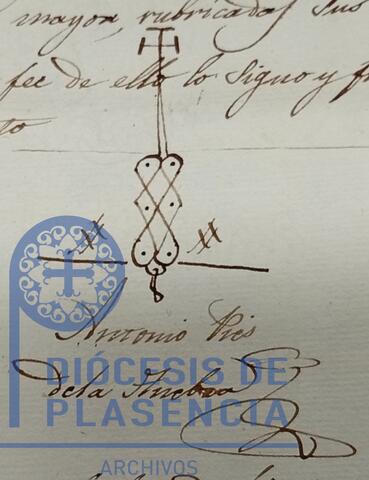 mayor, rubricadas sus
fee de ello lo signo y
to
Antonio
de la
DIÓCESIS DE
PLASENCIA
ARCHIVOS